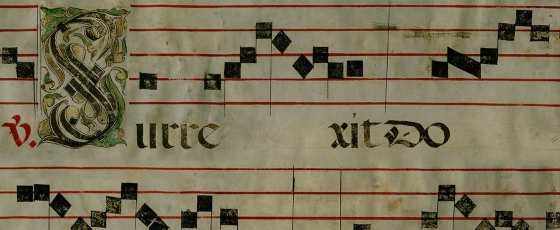 v. Surre xit do